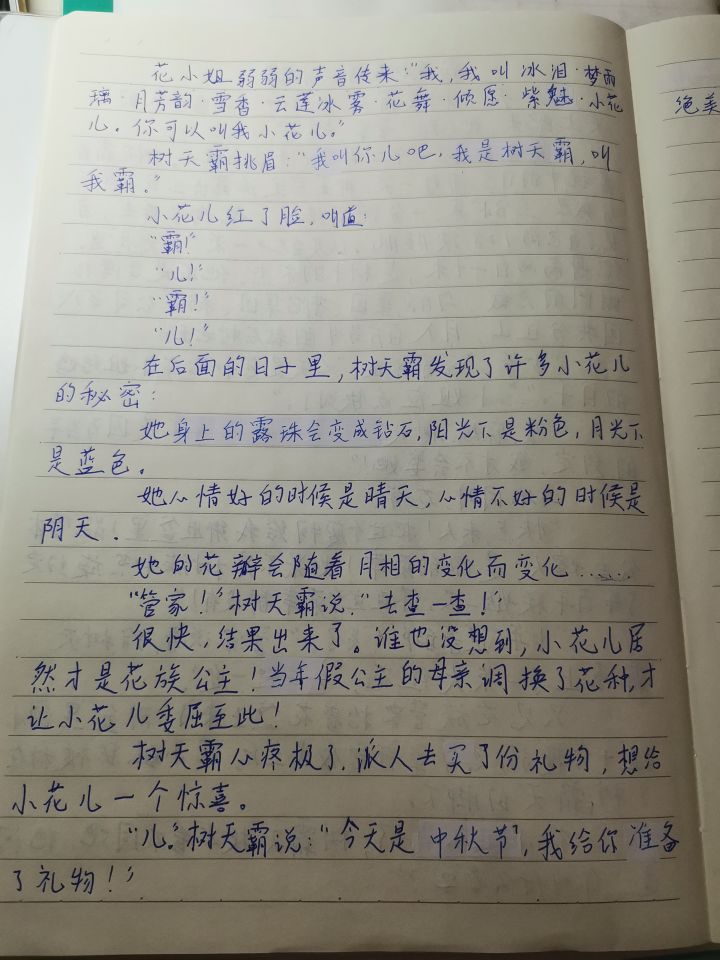 花小姐弱弱的声音传来：“我，我叫冰泪·梦雨
璃·月芳韵·雪香·云莲冰雾·花舞·倾愿·紫魅·小花
儿。你可以叫我小花儿。”
树天霸挑眉：“我叫你儿吧，我是树天霸，叫
我霸。”
小花儿红了脸，叫道：
“霸！”
“儿！”
“霸！”
“儿！”
在后面的日子里，树天霸发现了许多小花儿
的秘密：
她身上的露珠会变成钻石，阳光下是粉色，月光下
是蓝色。
她心情好的时候是晴天，心情不好的时候是
阴天．
她的花瓣会随着月相的变化而变化……
“管家！”树天霸说，“去查一查！”
很快，结果出来了。谁也没想到，小花儿居
然才是花族公主！当年假公主的母亲调换了花种，才
让小花儿委屈至此！
树天霸心疼极了，派人去买了份礼物，想给
小花儿一个惊喜。
“儿。”树天霸说：“今天是中秋节，我给你准备
了礼物！”
绝美